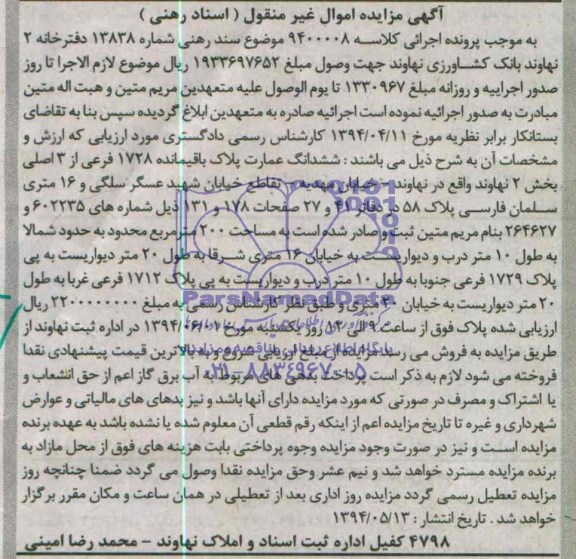 آگهی مزایده اموال غیر منقول ( اسناد رهنی )
به موجب پرونده اجرائی کلاسه ۹۴۰۰۰۰۸ موضوع سند رهنی شماره ۱۳۸۳۸ دفترخانه ۲
نهاوند بانک کشاورزی نهاوند جهت وصول مبلغ ۱۹۳۳۶۹۷۶۵۲ ریال موضوع لازم الاجرا تا روز
صدور اجراییه و روزانه مبلغ ۱۳۳۰۹۶۷ تا یوم الوصول علیه متعهدین مریم متین و هبت اله متین
مبادرت به صدور اجرائیه نموده است اجرائیه صادره به متعهدین ابلاغ گردیده سپس بنا به تقاضای
بستانکار برابر نظریه مورخ ۱۳۹۴/۰۴/۱۱ کارشناس رسمی دادگستری مورد ارزیابی که ارزش و
مشخصات آن به شرح ذیل می باشند : ششدانگ عمارت پلاک باقیمانده ۱۷۲۸ فرعی از ۳ اصلی
بخش ۲ نهاوند واقع در نهاوند - خیابان مهدیه - تقاطع خیابان شهید عسگر سلگی و ۱۶ متری
سلمان فارسی پلاک ۵۸ در دفاتر ۴۱ و ۲۷ صفحات ۱۷۸ و ۱۳۱ ذیل شماره های ۶۰۲۲۳۵ و
۲۶۴۶۲۷ بنام مریم متین ثبت و صادر شده است به مساحت ۲۰۰ مترمربع محدود به حدود شمالا
به طول ۱۰ متر درب و دیواریست به خیابان ۱۶ متری شرقا به طول ۲۰ متر دیواریست به پی
پلاک ۱۷۲۹ فرعی جنوبا به طول ۱۰ متر درب و دیواریست به پی پلاک ۱۷۱۲ فرعی غربا به طول
۲۰ متر دیواریست به خیابان ۳۰ متری و طبق نظر کارشناس رسمی به مبلغ ۲۲۰۰۰۰۰۰۰۰ ریال
ارزیابی شده پلاک فوق از ساعت ۹ الی ۱۲ روز یکشنبه مورخ ۱۳۹۴/۰۶/۰۱ در اداره ثبت نهاوند از
طریق مزایده به فروش می رسد مزایده از مبلغ ارزیابی شروع و به بالاترین قیمت پیشنهادی نقدا
فروخته می شود لازم به ذکر است پرداخت بدهی های مربوط به آب برق گاز اعم از حق انشعاب و
یا اشتراک و مصرف در صورتی که مورد مزایده دارای آنها باشد و نیز بدهی های مالیاتی و عوارض
شهرداری و غیره تا تاریخ مزایده اعم از اینکه رقم قطعی آن معلوم شده یا نشده باشد به عهده برنده
مزایده است و نیز در صورت وجود مزایده وجوه پرداختی بابت هزینه های فوق از محل مازاد به
برنده مزایده مسترد خواهد شد و نیم عشر وحق مزایده نقدا وصول می گردد ضمنا چنانچه روز
مزایده تعطیل رسمی گردد مزایده روز اداری بعد از تعطیلی در همان ساعت و مکان مقرر برگزار
خواهد شد . تاریخ انتشار : ۱۳۹۴/۰۵/۱۳
۴۷۹۸ کفیل اداره ثبت اسناد و املاک نهاوند – محمد رضا امینی
ParsNamadData
۰۲۱-۸۸۳۴۹۶۷۰-۵